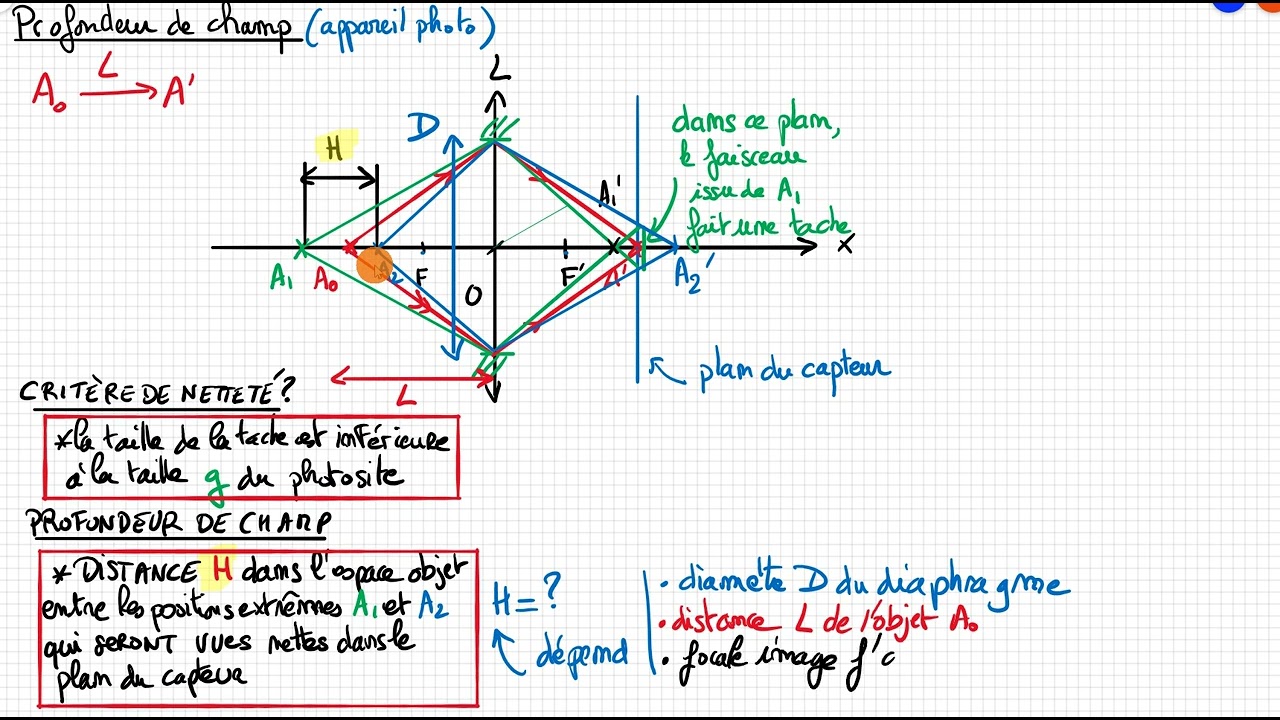 Profondeur de champ (appareil photo)
L
A₀ → A'
L
D
H
dans ce plan,
le faisceau
issu de A₁
fait une tache
A₁'
X
A₁ A₀ A₂ F O F' A' A₂'
plan du capteur
L
CRITÈRE DE NETTETÉ?
*la taille de la tache est inférieure
à la taille g du photosite
PROFONDEUR DE CHAMP
* DISTANCE H dans l'espace objet
entre les positions extrêmes A₁ et A₂
qui SERONT VUES nettes dans le
plan du capteur
H = ?
dépend
• diamètre D du diaphragme
• distance L de l'objet A₀
• focale image f'c